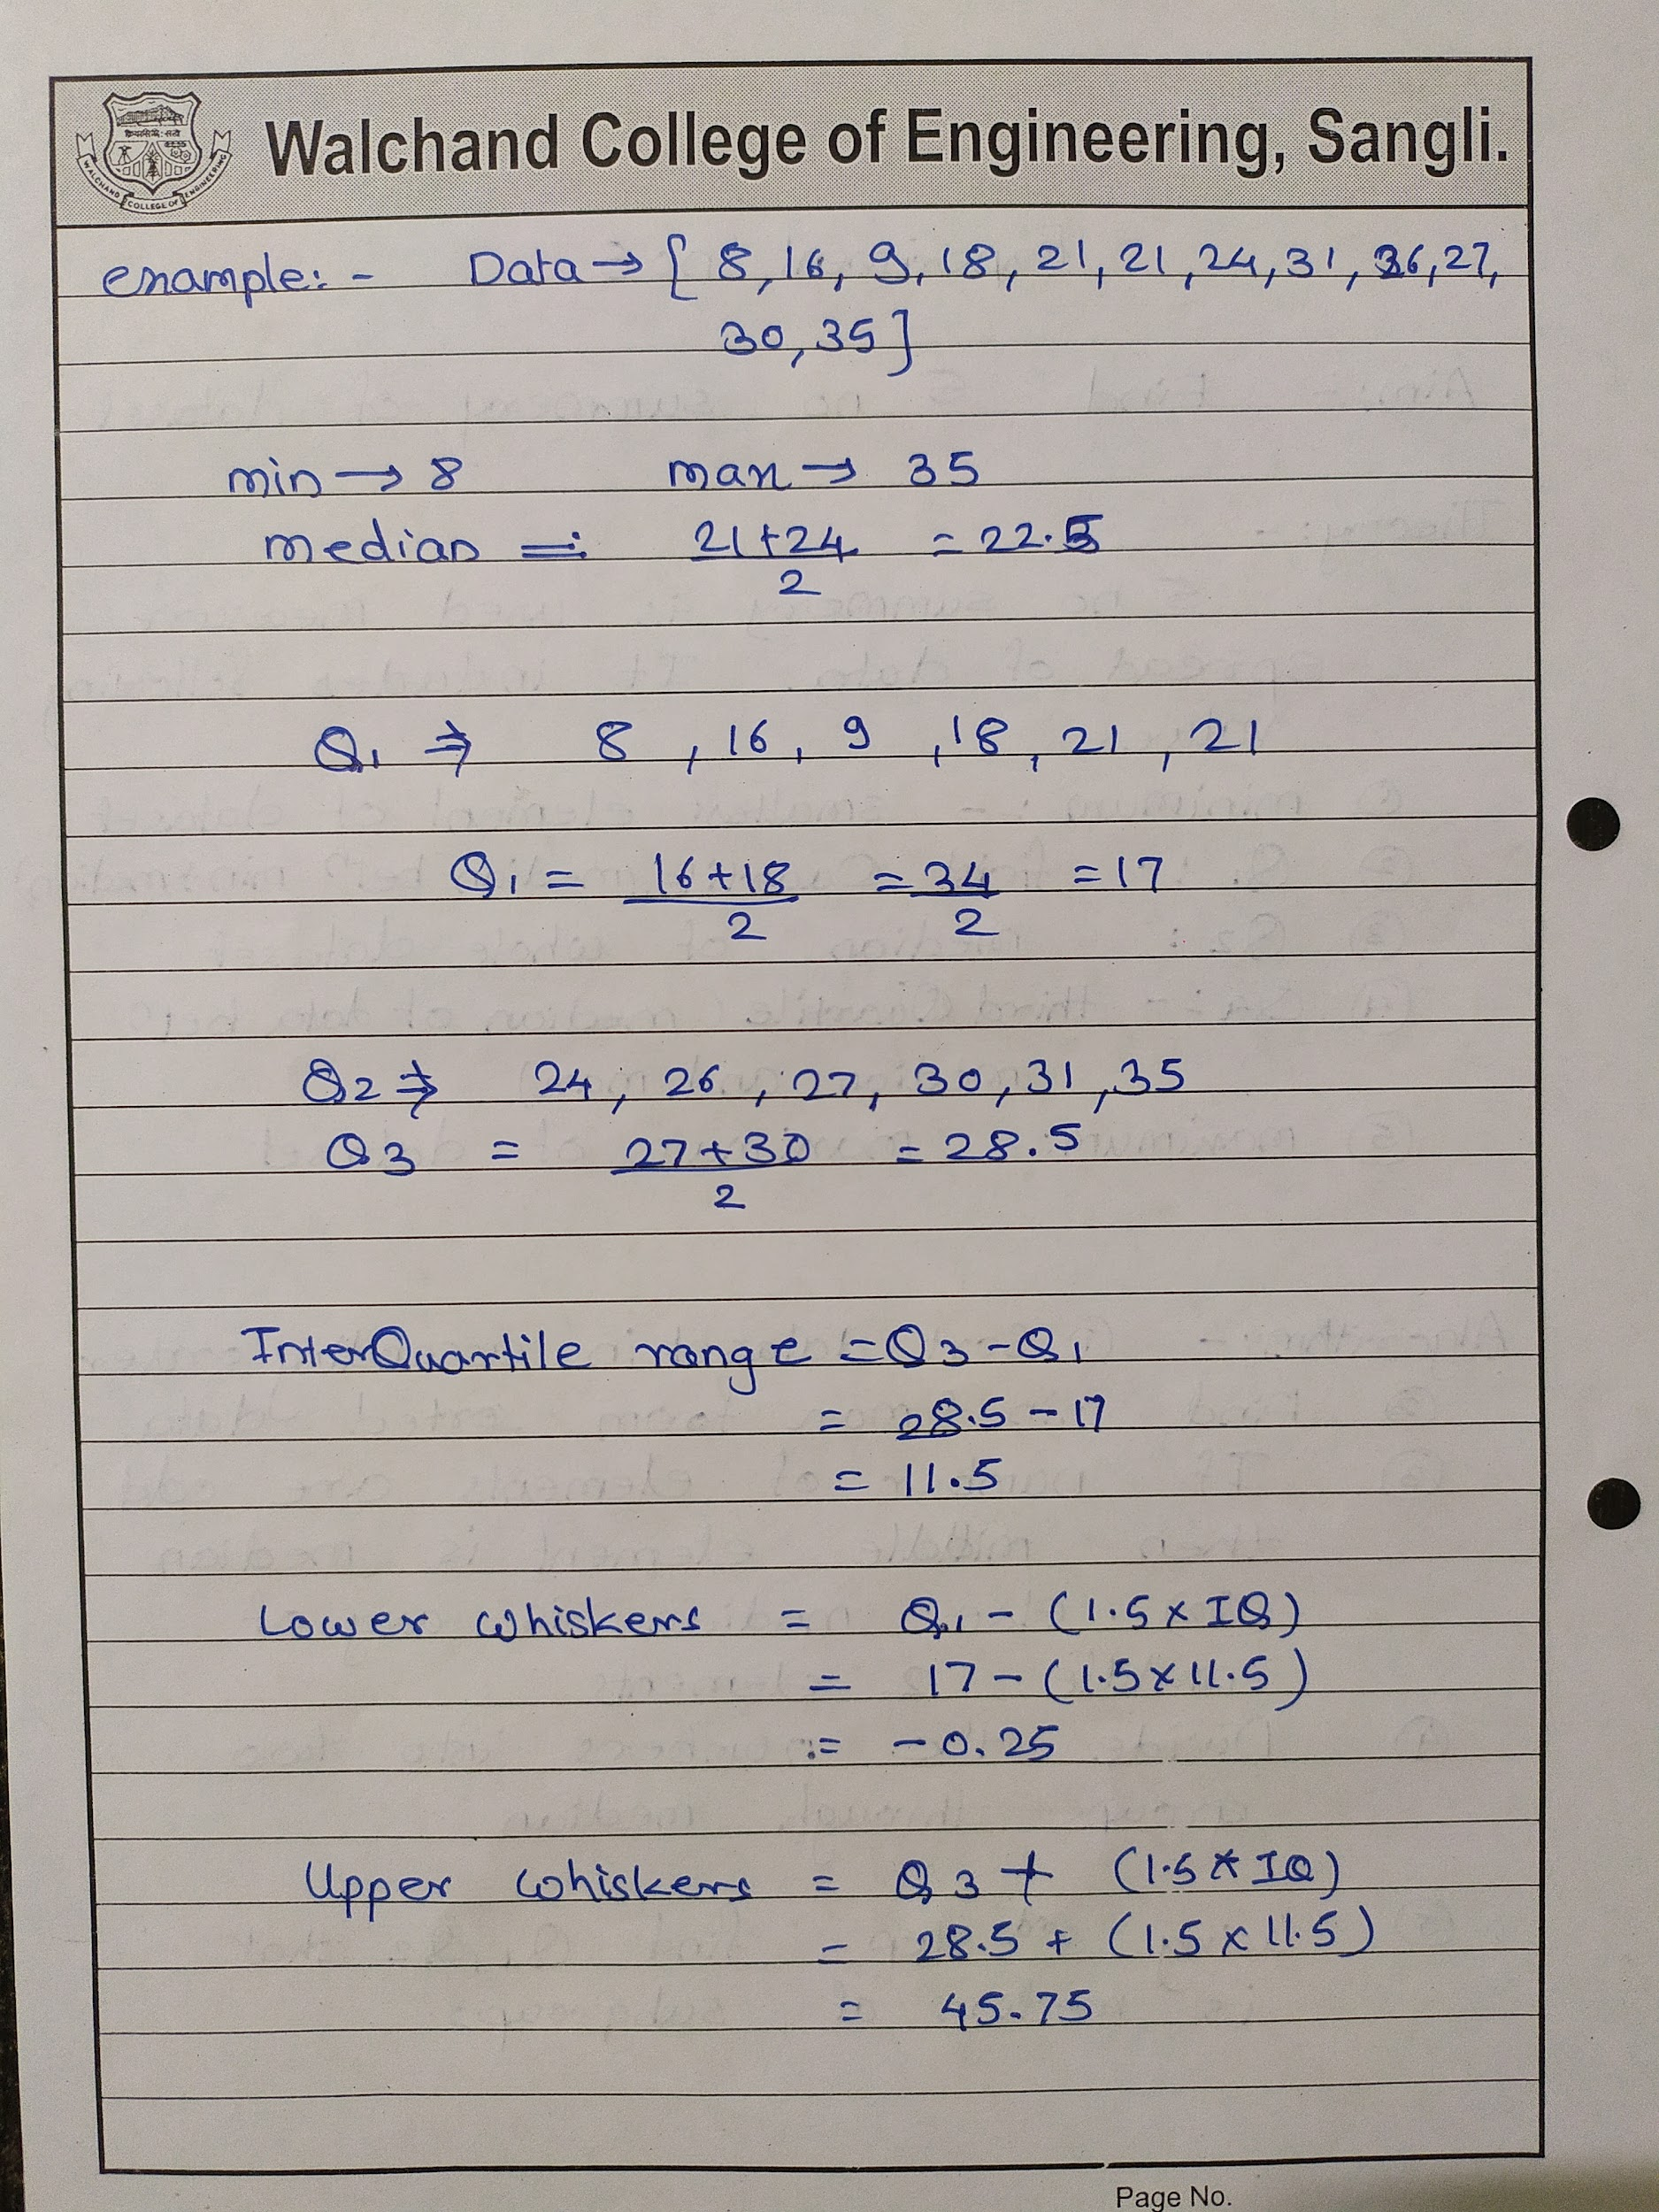 Walchand College of Engineering, Sangli.
WALCHAND COLLEGE OF ENGINEERING
example:- Data → [ 8, 16, 9, 18, 21, 21, 24, 31, 26, 27,
30, 35 ]
min → 8 max → 35
median = 21+24 = 22.5
2
Q1 ⇒ 8 , 16 , 9 , 18 , 21 , 21
Q1 = 16+18 = 34 = 17
2 2
Q2 ⇒ 24 , 26 , 27 , 30 , 31 , 35
Q3 = 27+30 = 28.5
2
InterQuartile range = Q3 - Q1
= 28.5 - 17
= 11.5
Lower whiskers = Q1 - (1.5 x IQ)
= 17 - (1.5 x 11.5)
= -0.25
Upper whiskers = Q3 + (1.5 * IQ)
= 28.5 + (1.5 x 11.5)
= 45.75
Page No.